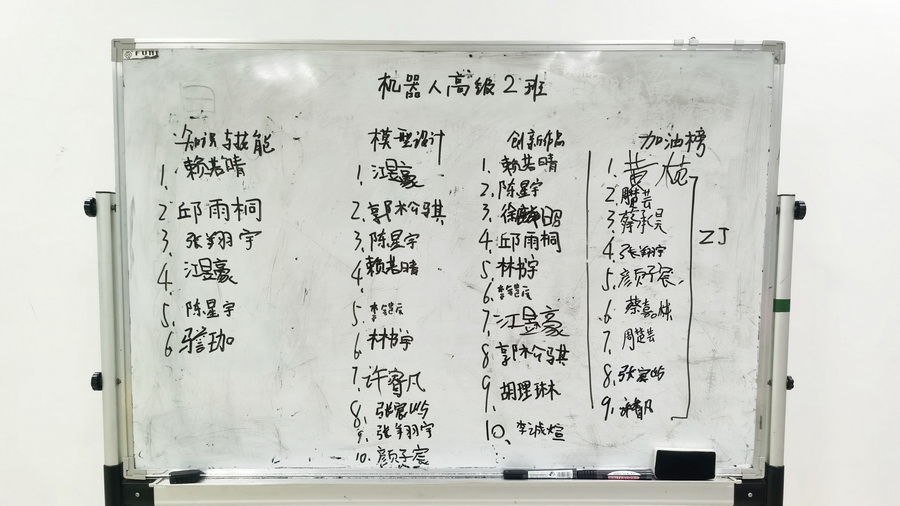 机器人高级2班
知识与技能
1. 赖若晴
2. 邱雨桐
3. 张翔宇
4. 江昱豪
5. 陈星宇
6
模型设计
1. 江昱豪
2. 郭松骐
3. 陈星宇
4. 赖若晴
5.
6. 林书宇
7. 许睿凡
8. 张宸屿
9. 张翔宇
10. 颜子宸
创新作品
1. 赖若晴
2. 陈星宇
3. 徐
4. 邱雨桐
5. 林书宇
6.
7. 江昱豪
8. 郭松骐
9. 胡理琳
10. 李诚煊
加油榜
1. 黄
2.
3. 蔡承昊
4. 张翔宇
5. 颜子宸
6. 蔡嘉
7. 周楚芸
8. 张宸屿
9. 许睿凡
ZJ